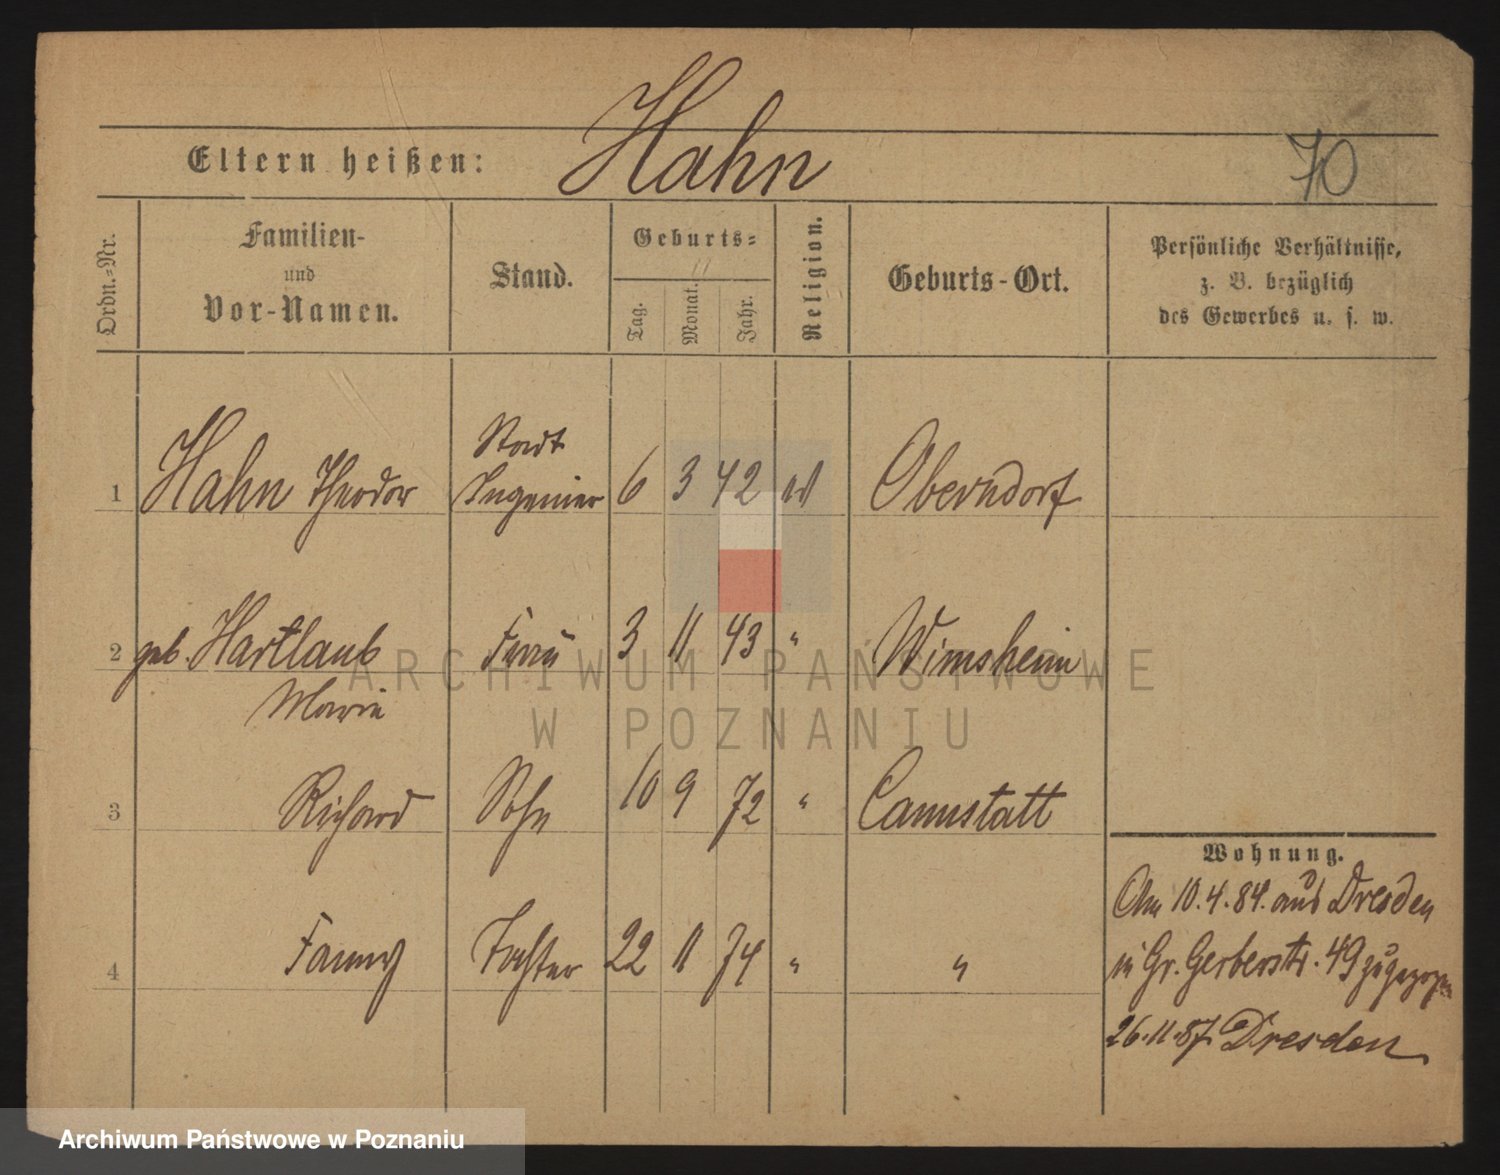 Hahn
Eltern heißen:
70
Ordn.=Nr.
Familien-
und
Vor-Namen.
Stand.
Geburts=
Tag.
Monat.
Jahr.
Religion.
Geburts-Ort.
Persönliche Verhältnisse,
z. B. bezüglich
des Gewerbes u. s. w.
Stadt
1 Hahn Theodor Ingenier 6 3 42 Oberndorf
2 geb. Hartlaub Frau 3 11 43 " Wimsheim
Marie
3 Richard Sohn 10 9 72 " Cannstatt
4 Fanny Tochter 22 11 74 " "
Wohnung.
Am 10.4.84. aus Dresden
in Gr. Gerberstr. 49 zugezogen
26.11.87 Dresden
ARCHIWUM PAŃSTWOWE
W POZNANIU
Archiwum Państwowe w Poznaniu